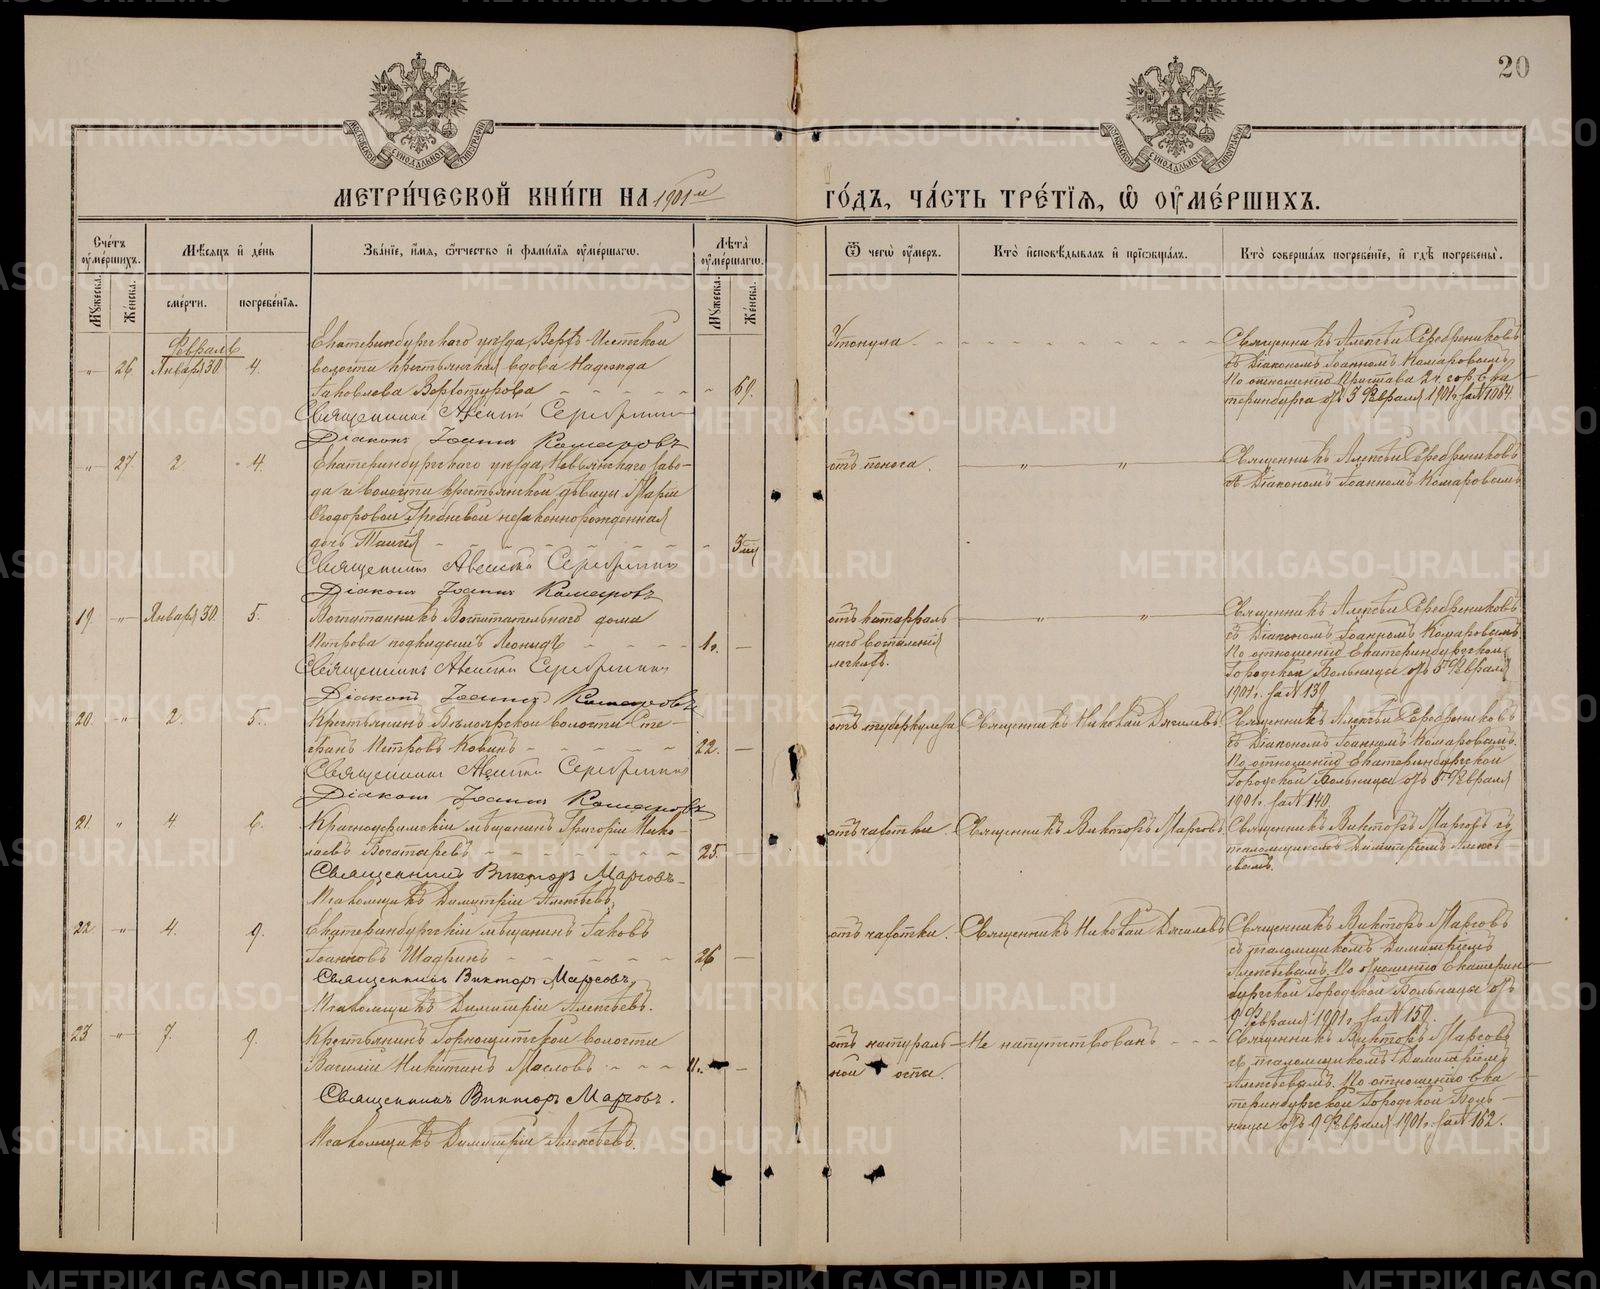 20
МОСКОВСКОЙ СѴНОДАЛЬНОЙ ТИПОГРАФІИ
МОСКОВСКОЙ СѴНОДАЛЬНОЙ ТИПОГРАФІИ
МЕТРИ́ЧЕСКОЙ КНИ́ГИ НА 1901й
ГО́ДЪ, ЧА́СТЬ ТРЕ́ТІЯ, Ѡ҆ ОУ҆МЕ́РШИХЪ.
Сче́тъ оу҆ме́ршихъ.
Мꙋ́жеска.
Же́нска.
Мѣ́сяцъ и҆ де́нь
сме́рти.
погребе́нїя.
Зва́нїе, и҆́мя, ѻ҆́тчество и҆ фами́лїя оу҆ме́ршагѡ.
Лѣ́та оу҆ме́ршагѡ.
Мꙋ́жеска.
Же́нска.
Ѿ чегѡ̀ оу҆́меръ.
Кто̀ и҆сповѣ́дывалъ и҆ прїѡбща́лъ.
Кто̀ соверша́лъ погребе́нїе, и҆ гдѣ̀ погребены̀.
Февраль
„ 26. Января 30 4.
Екатеринбургскаго уѣзда, Верхъ-Исетской
волости крестьянская вдова Надежда
Іаковлева Верхотурова 69.
Священникъ Алексій Серебрениковъ
Діаконъ Іоаннъ Комаровъ
Утонула.
Священникъ Алексѣй Серебрениковъ
съ Діакономъ Іоанномъ Комаровымъ
По отношенію Пристава 2 ч. гор. Ека
теринбурга отъ 3 Февраля 1901 г. за № 1064.
„ 27. 2. 4.
Екатеринбургскаго уѣзда, Невьянскаго заво-
да и волости крестьянской дѣвицы Маріи
Ѳеодоровой Гребневой незаконнорожденная
дочь Таисія 3 м
Священникъ Алексій Серебрениковъ
Діаконъ Іоаннъ Комаровъ
отъ поноса.
Священникъ Алексѣй Серебрениковъ
съ Діакономъ Іоанномъ Комаровымъ
19. „ Января 30. 5.
Воспитанникъ Воспитательнаго дома
Петрова подкидышъ Леонидъ 1 г.
Священникъ Алексій Серебрениковъ
Діаконъ Іоаннъ Комаровъ
отъ катарраль
наго воспаленія
легкихъ.
Священникъ Алексѣй Серебрениковъ
съ Діакономъ Іоанномъ Комаровымъ
По отношенію Екатеринбургской
Городской Больницы отъ 5 Февраля
1901 г. за № 139
20. „ 2. 5.
Крестьянинъ Бѣлоярской волости Сте-
фанъ Петровъ Ковинъ 22.
Священникъ Алексій Серебрениковъ
Діаконъ Іоаннъ Комаровъ
отъ туберкулеза
Священникъ Николай Дягилевъ
Священникъ Алексѣй Серебрениковъ
съ Діакономъ Іоанномъ Комаровымъ.
По отношенію Екатеринбургской
Городской Больницы отъ 5 Февраля
1901 г. за № 140.
21. „ 4. 6.
Красноуфимскій мѣщанинъ Григорій Нико-
лаевъ Богатыревъ 25.
Священникъ Викторъ Марсовъ
Псаломщикъ Димитрій Алексѣевъ
отъ чахотки.
Священникъ Викторъ Марсовъ
Священникъ Викторъ Марсовъ съ
псаломщикомъ Димитріемъ Алексѣ-
евымъ.
22. „ 4. 9.
Екатеринбургскій мѣщанинъ Іаковъ
Іоанновъ Шадринъ 26
Священникъ Викторъ Марсовъ
Псаломщикъ Димитрій Алексѣевъ.
отъ чахотки.
Священникъ Николай Дягилевъ
Священникъ Викторъ Марсовъ
съ псаломщикомъ Димитріемъ
Алексѣевымъ. По отношенію Екатерин-
бургской Городской Больницы отъ
9 Февраля 1901 г. за № 159.
23 „ 7. 9.
Крестьянинъ Горнощитской волости
Василій Никитинъ Масловъ 11.
Священникъ Викторъ Марсовъ.
Псаломщикъ Димитрій Алексѣевъ.
отъ натураль-
ной оспы.
Не напутствованъ
Священникъ Викторъ Марсовъ
съ псаломщикомъ Димитріемъ
Алексѣевымъ. По отношенію Ека
теринбургской Городской Боль-
ницы отъ 9 Февраля 1901 г. за № 162.